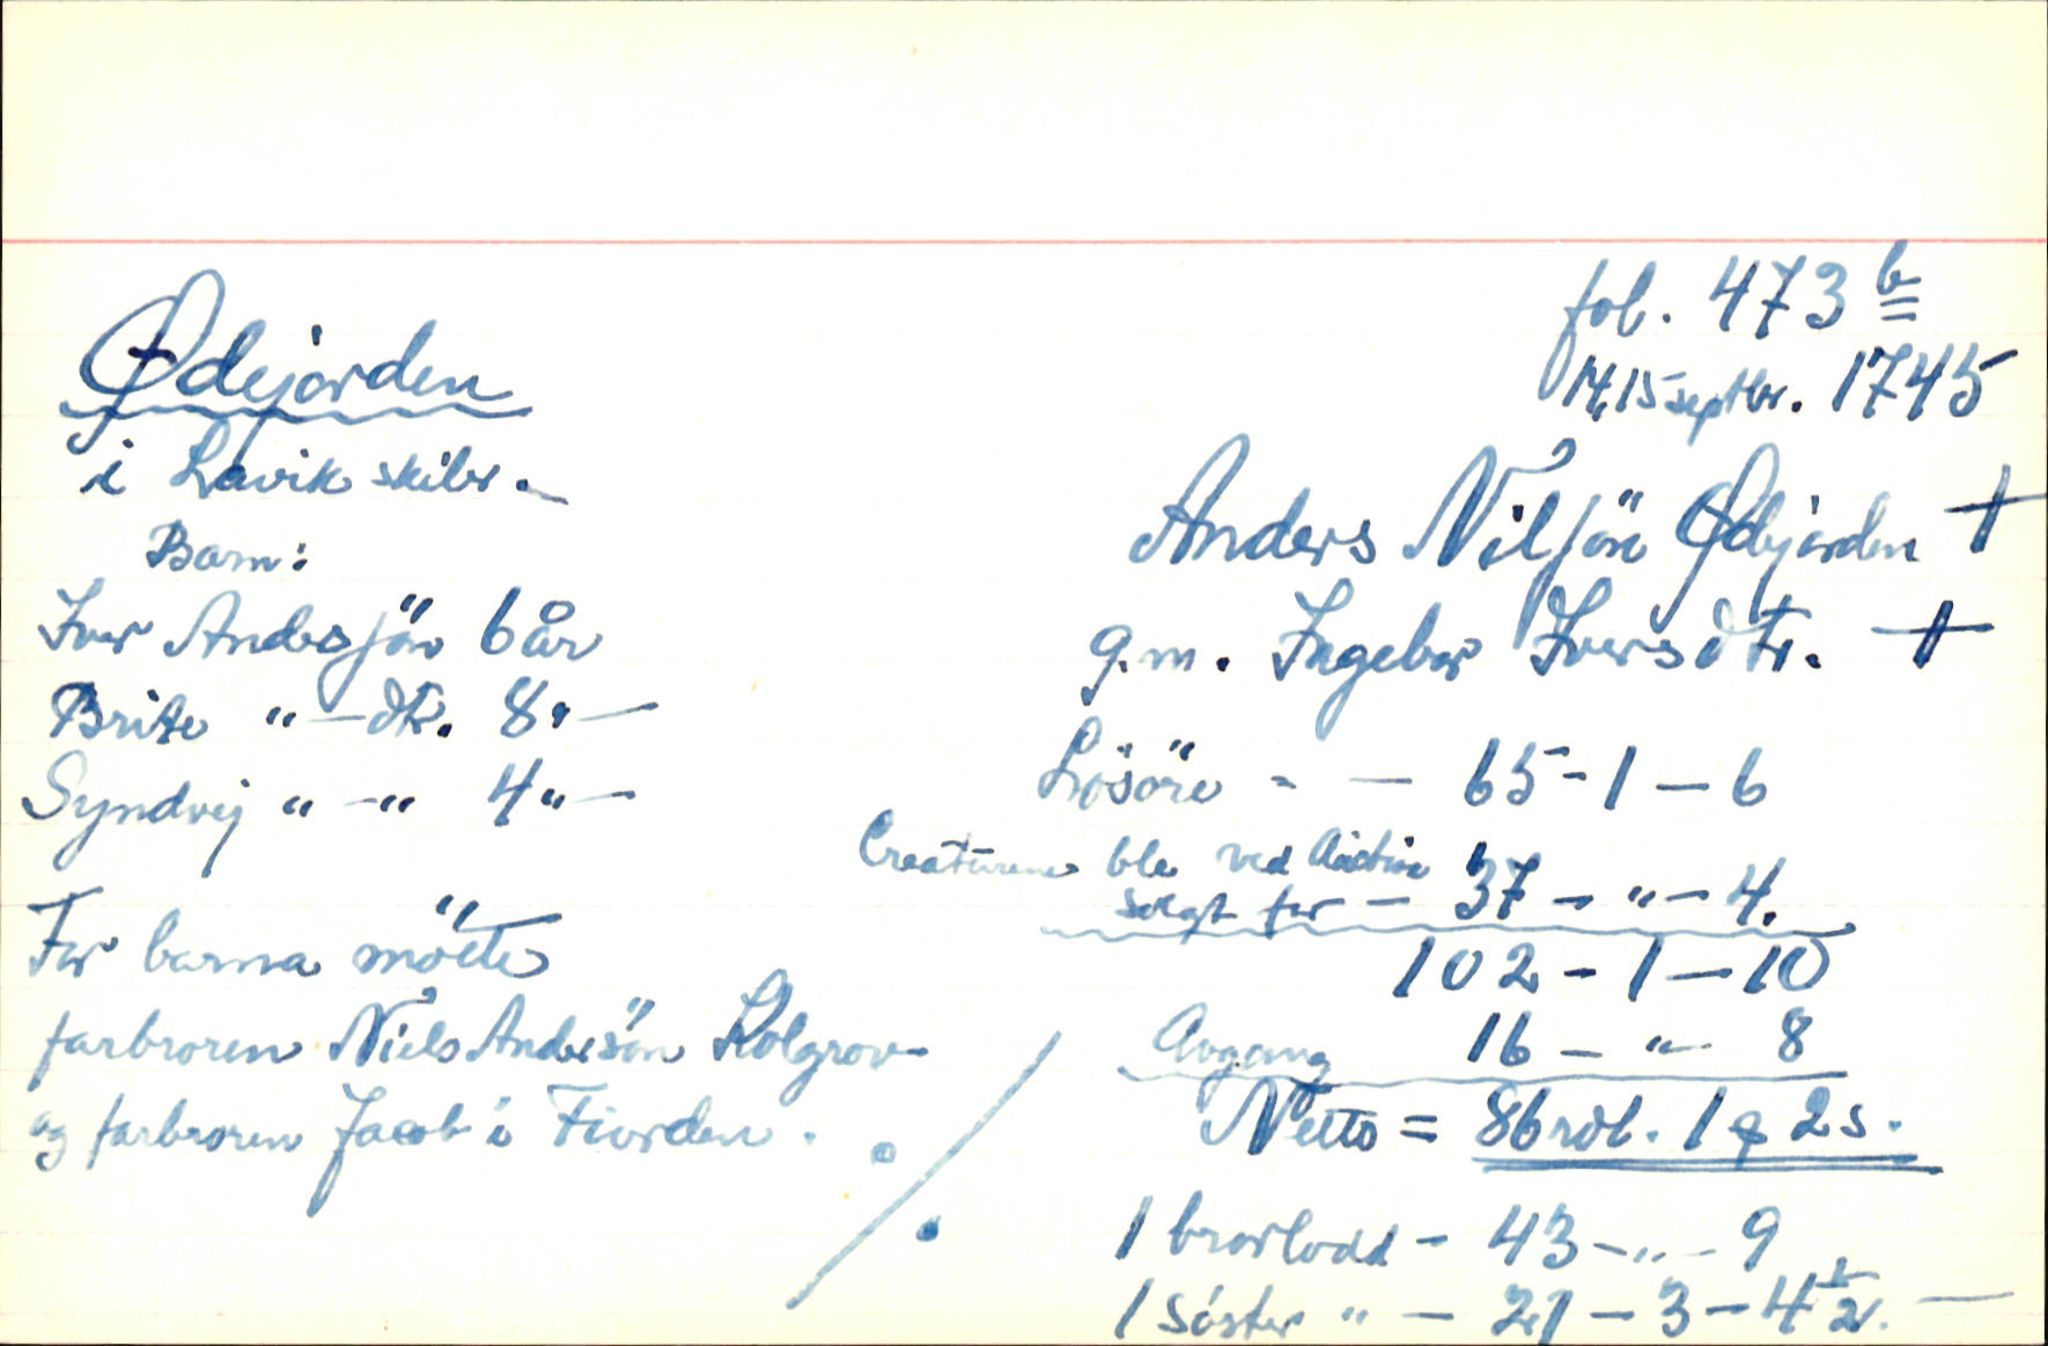 fol. 473 b
14, 15 septbr. 1745
Ødejorden
i Lavik skibr.
Barn:
Iver Andersjön 6 år
Brite " — dtr. 8 " —
Syndvej " — " 4 " —
For barna mötte
farbroren Niels Andersön Holgrov
og farbroren Jacob i Fiorden.
Anders Niljön Ødejorden +
g.m. Ingebor Iversdtr. +
Lösöre - — 65 - 1 — 6
Creaturene ble ved Auction
solgt for — 37 — " — 4.
102 - 1 — 10
Avgang 16 — " — 8
Netto = 86 rdl. 1 q 2 s.
1 brorlodd - 43 - " - 9
1 Söster " — 21 — 3 — 4 1/2. —